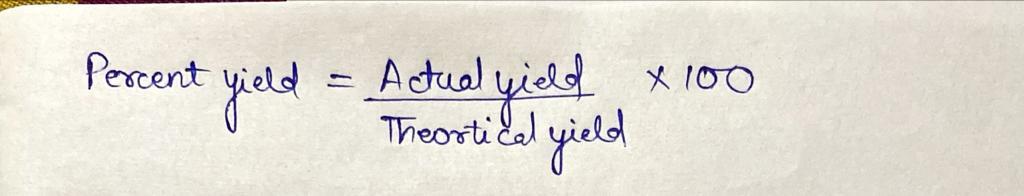 Percent yield = Actual yield × 100
Theortical yield